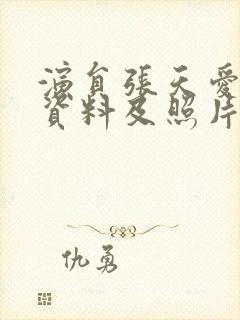 演員張天愛
資料及照片
仇勇